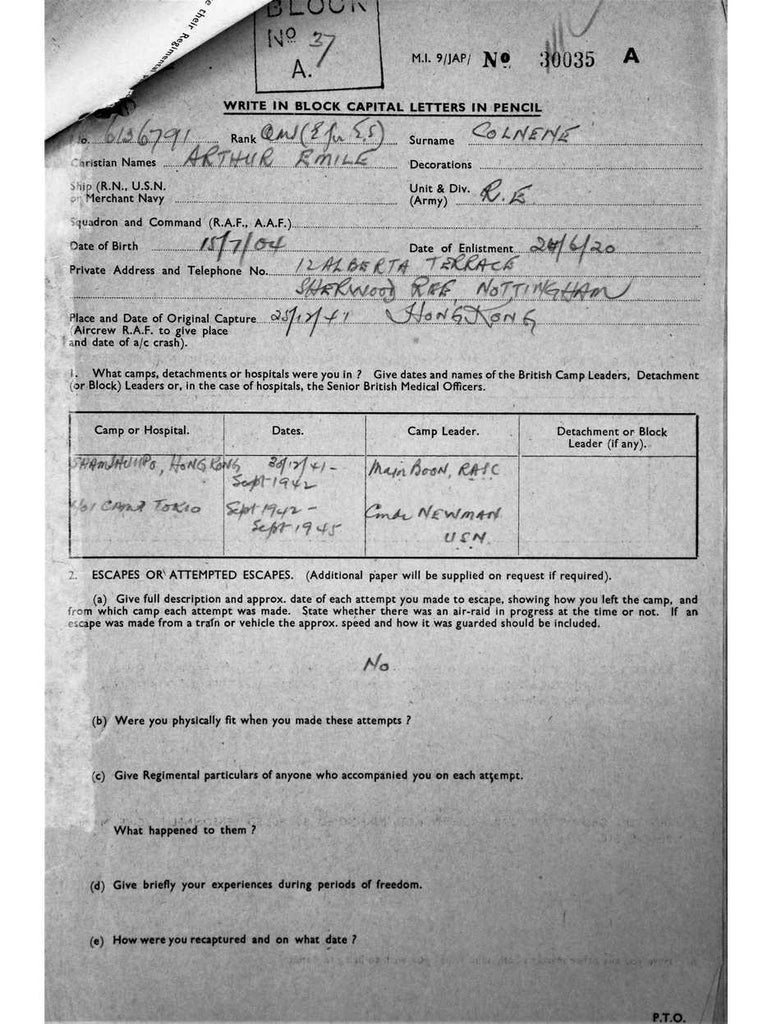 e their Regimental
BLOCK
No 37
A.
M.I. 9/JAP/ No 30035 A
WRITE IN BLOCK CAPITAL LETTERS IN PENCIL
No. 6136791 Rank QMS (E for E.S) Surname COLNENE
Christian Names ARTHUR EMILE Decorations
Ship (R.N., U.S.N. Unit & Div. R.E.
or Merchant Navy (Army)
Squadron and Command (R.A.F., A.A.F.)
Date of Birth 15/7/04 Date of Enlistment 24/6/20
Private Address and Telephone No. 12 ALBERTA TERRACE
SHERWOOD RISE, NOTTINGHAM
Place and Date of Original Capture 25/12/41 HONG KONG
(Aircrew R.A.F. to give place
and date of a/c crash).
1. What camps, detachments or hospitals were you in ? Give dates and names of the British Camp Leaders, Detachment
(or Block) Leaders or, in the case of hospitals, the Senior British Medical Officers.
Camp or Hospital. Dates. Camp Leader. Detachment or Block
Leader (if any).
SHAMSHUIPO, HONG KONG 30/12/41 - Major BOON, RASC
Sept 1942
CAMP TOKIO Sept 1942 - Cmdr NEWMAN
Sept 1945 USN.
2. ESCAPES OR ATTEMPTED ESCAPES. (Additional paper will be supplied on request if required).
(a) Give full description and approx. date of each attempt you made to escape, showing how you left the camp, and
from which camp each attempt was made. State whether there was an air-raid in progress at the time or not. If an
escape was made from a train or vehicle the approx. speed and how it was guarded should be included.
No
(b) Were you physically fit when you made these attempts ?
(c) Give Regimental particulars of anyone who accompanied you on each attempt.
What happened to them ?
(d) Give briefly your experiences during periods of freedom.
(e) How were you recaptured and on what date ?
P.T.O.